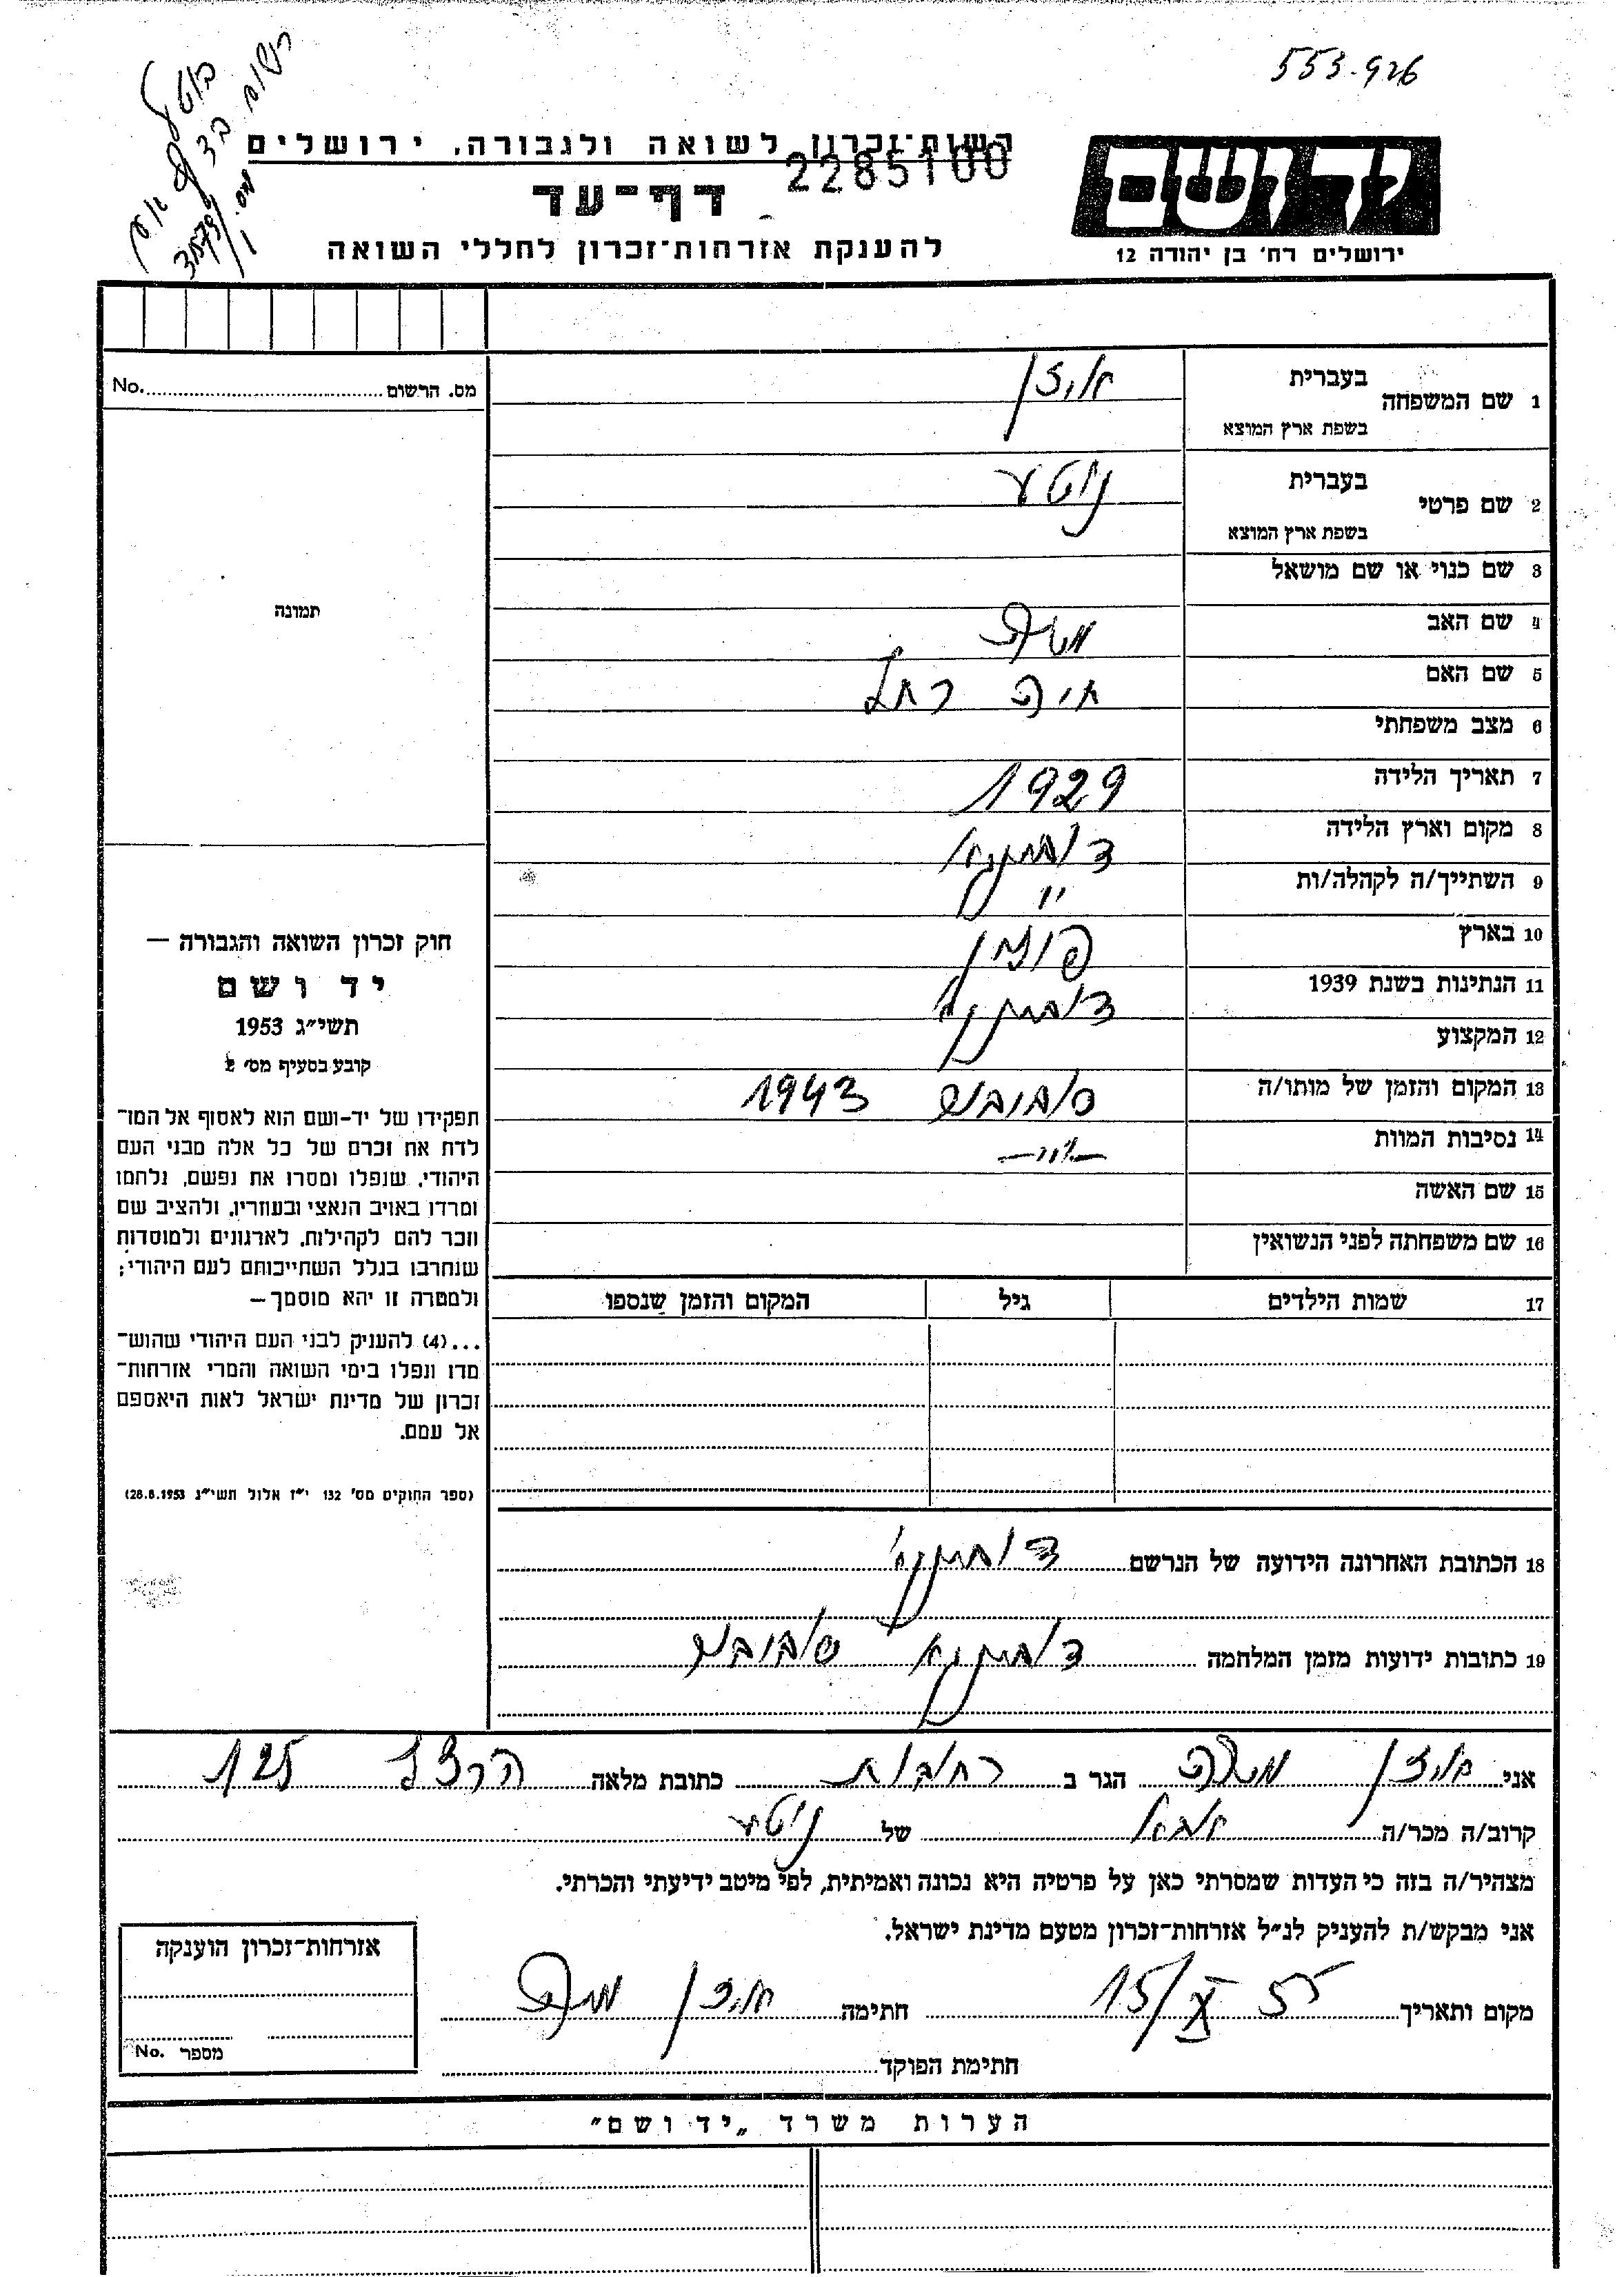 553.926
בוטל
רשום בדף
מס.
רשות־זכרון לשואה ולגבורה, ירושלים
2285100
דף־עד
להענקת אזרחות־זכרון לחללי השואה
יד ושם
ירושלים רח' בן יהודה 12
מס. הרשום No.
תמונה
חוק זכרון השואה והגבורה —
יד ושם
תשי״ג 1953
קובע בסעיף מס' 2
תפקידו של יד-ושם הוא לאסוף אל המו־
לדת את זכרם של כל אלה מבני העם
היהודי, שנפלו ומסרו את נפשם, נלחמו
ומרדו באויב הנאצי ובעוזריו, ולהציב שם
וזכר להם לקהילות, לארגונים ולמוסדות
שנחרבו בגלל השתייכותם לעם היהודי;
ולמטרה זו יהא מוסמך—
...(4) להעניק לבני העם היהודי שהוש־
מדו ונפלו בימי השואה והמרי אזרחות־
זכרון של מדינת ישראל לאות היאספם
אל עמם.
(ספר החוקים מס' 132 י״ז אלול תשי״ג 28.8.1953)
1 שם המשפחה בעברית אויזן
בשפת ארץ המוצא
2 שם פרטי בעברית נוטע
בשפת ארץ המוצא
3 שם כנוי או שם מושאל
4 שם האב משה
5 שם האם חיה רחל
6 מצב משפחתי
7 תאריך הלידה 1929
8 מקום וארץ הלידה
9 השתייך/ה לקהלה/ות
10 בארץ פולין
11 הנתינות בשנת 1939
12 המקצוע
13 המקום והזמן של מותו/ה סוביבור 1943
14 נסיבות המוות
15 שם האשה
16 שם משפחתה לפני הנשואין
17 שמות הילדים גיל המקום והזמן שנספו
18 הכתובת האחרונה הידועה של הנרשם
19 כתובות ידועות מזמן המלחמה
אני אויזן משה הגר ב רחובות כתובת מלאה הרצל 125
קרוב/ה מכר/ה של נוטע
מצהיר/ה בזה כי העדות שמסרתי כאן על פרטיה היא נכונה ואמיתית, לפי מיטב ידיעתי והכרתי.
אני מבקש/ת להעניק לנ״ל אזרחות־זכרון מטעם מדינת ישראל.
מקום ותאריך 15/X 55 חתימה אויזן משה
חתימת הפוקד
אזרחות־זכרון הוענקה
מספר No.
הערות משרד „יד ושם״